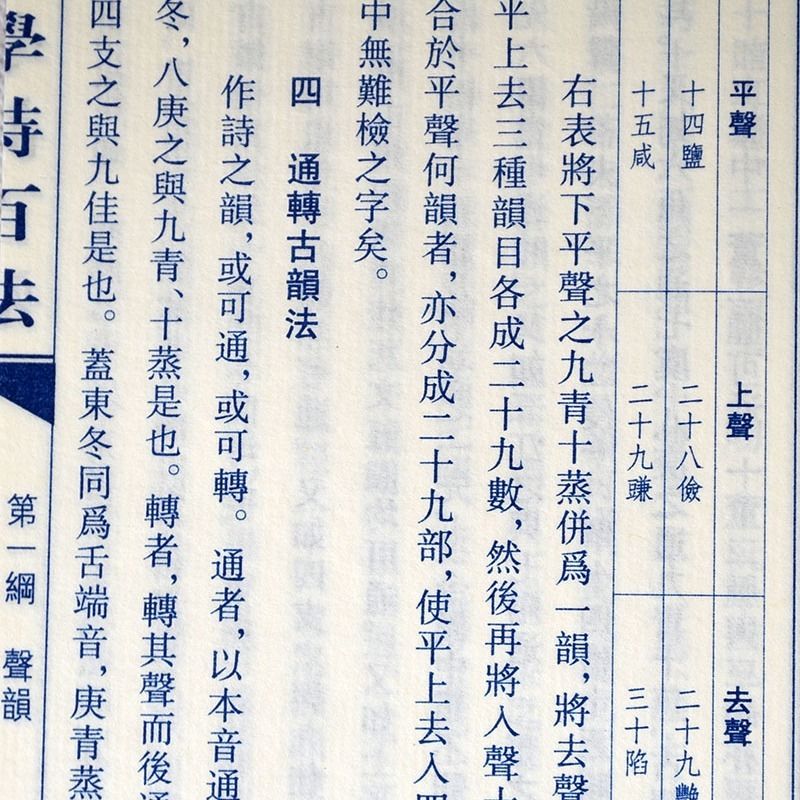 平聲
上聲
去聲
十四鹽
二十八儉
二十九艷
十五咸
二十九豏
三十陷
右表將下平聲之九青十蒸併爲一韻，將去聲
平上去三種韻目各成二十九數，然後再將入聲十
合於平聲何韻者，亦分成二十九部，使平上去入四
中無難檢之字矣。
四 通轉古韻法
作詩之韻，或可通，或可轉。通者，以本音通
冬，八庚之與九青、十蒸是也。轉者，轉其聲而後通
四支之與九佳是也。蓋東冬同爲舌端音，庚青蒸
學詩百法
第一綱 聲韻